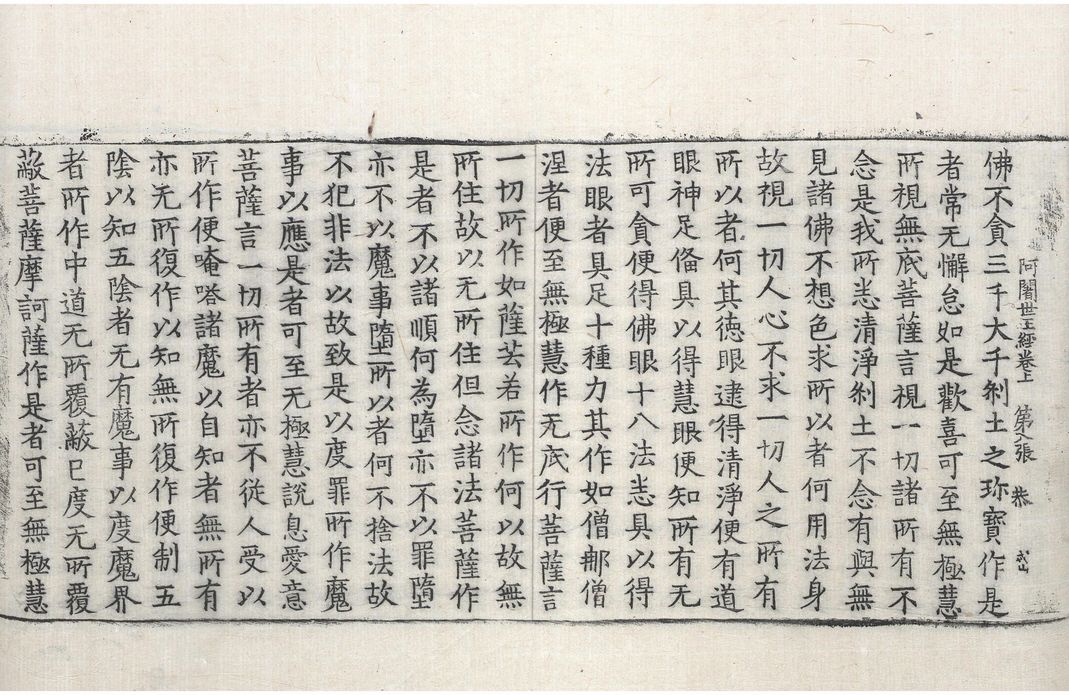 阿闍世王經卷上　第八張　恭
佛不貪三千大千刹土之珎寶作是
者常无懈怠如是歡喜可至無極慧
所視無底菩薩言視一切諸所有不
念是我所悉清淨刹土不念有與無
見諸佛不想色求所以者何用法身
故視一切人心不求一切人之所有
所以者何其德眼逮得清淨便有道
眼神足俻具以得慧眼便知所有无
所可貪便得佛眼十八法悉具以得
法眼者具足十種力其作如僧那僧
涅者便至無極慧作无底行菩薩言
一切所作如薩芸若所作何以故無
所住故以无所住但念諸法菩薩作
是者不以諸順何為墮亦不以罪墮
亦不以魔事墮所以者何不捨法故
不犯非法以故致是以度罪所作魔
事以應是者可至无極慧說息愛意
菩薩言一切所有者亦不從人受以
所作便唵嗒諸魔以自知者無所有
亦无所復作以知無所復作便制五
陰以知五陰者无有魔事以度魔界
者所作中道无所覆蔽已度无所覆
蔽菩薩摩訶薩作是者可至無極慧